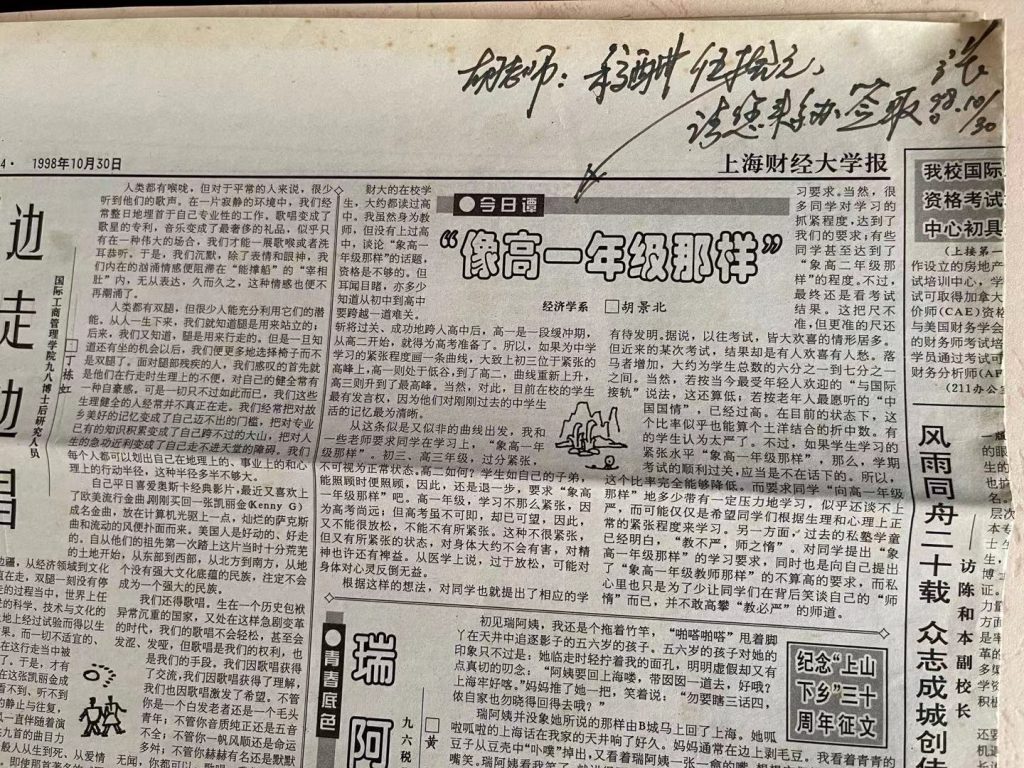 胡老师：稿酬伍拾元，
请您来系办签取
98.10/30
4· 1998年10月30日
上海财经大学报
边
走
边
唱
国际工商管理学院九八博士后研究人员
□丁栋虹
人类都有喉咙，但对于平常的人来说，很少
听到他们的歌声。在一片寂静的环境中，我们经
常整日地埋首于自己专业性的工作。歌唱变成了
歌星的专利，音乐变成了最奢侈的礼品，似乎只
有在一种伟大的场合，我们才能一展歌喉或者洗
耳恭听。于是，我们沉默，除了表情和眼神，我
们内在的汹涌情感便阻滞在“能撑船”的“宰相
肚”内，无从表达，久而久之，这种情感也便不
再潮涌了。
人类都有双腿，但很少人能充分利用它们的潜
能。从人一生下来，我们就知道腿是用来站立的；
后来，我们又知道，腿是用来行走的。但是一旦知
道还有坐的机会以后，我们便更多地选择椅子而不
是双腿了。面对腿部疾病的人，我们感叹的首先就
是他们在行走时生理上的不便，对自己的健全常有
一种自豪感。可是一切只不过如此而已，我们这些
生理健全的人经常并不真正在走。我们经常把对故
乡美好的记忆变成了自己迈不出的门槛，把对专业
已有的知识积累变成了自己跨不过的大山，把对人
生的急功近利变成了自己走不进天堂的障碍。我们
每个人都可以划出自己在地理上的、事业上的和心
理上的行动半径，这种半径多半不够大。
自己平日喜爱奥斯卡经典影片，最近又喜欢上
了欧美流行金曲，刚刚买回一张凯丽金(Kenny G)
成名金曲，放在计算机光驱上一点，灿烂的萨克斯
曲和流动的风便扑面而来。美国人是好动的、好走
的。自从他们的祖先第一次踏上这片当时十分荒芜
的土地开始，从东部到西部，从北方到南方，从地
个没有强大文化底蕴的民族，注定不会
成为一个强大的民族。
我们还得歌唱。生在一个历史包袱
异常沉重的国家，又处在这样急剧变革
的时代，我们的歌唱不会轻松，甚至会
发涩、发哑，但歌唱是我们的权利，也
是我们的手段。我们因歌唱获得
了交流，我们因歌唱获得了理解，
我们也因歌唱激发了希望。不管
你是一个白发老者还是一个毛头
青年；不管你音质纯正还是五音
不全；不管你一帆风顺还是命运
多舛；不管你赫赫有名还是默默
●今日谭
“像高一年级那样”
经济学系 □胡景北
财大的在校学
生，大约都读过高
中。我虽然身为教
师，但没有上过高
中，谈论“象高一
年级那样”的话题，
资格是不够的。但
耳闻目睹，亦多少
知道从初中到高中
要跨越一道难关。
斩将过关、成功地跨入高中后，高一是一段缓冲期，
从高二开始，就得为高考准备了。所以，如果为中学
学习的紧张程度画一条曲线，大致上初三位于紧张的
高峰上，高一则处于低谷，到了高二，曲线重新上升，
高三则升到了最高峰。当然，对此，目前在校的学生
最有发言权，因为他们对刚刚过去的中学生
活的记忆最为清晰。
从这条似是又似非的曲线出发，我和
一些老师要求同学在学习上，“象高一年
级那样”。初三、高三年级，过分紧张，
不可视为正常状态。高二如何？学生如自己的子弟，
能照顾时便照顾，因此，还是退一步，要求“象高
一年级那样”吧。高一年级，学习不那么紧张，因
为高考尚远；但高考虽不可即，却已可望，因此，
又不能很放松，不能不有所紧张。这种不很紧张，
但又有所紧张的状态，对身体大约不会有害，对精
神也许还有裨益。从医学上说，过于放松，可能对
身体对心灵反倒无益。
根据这样的想法，对同学也就提出了相应的学
习要求。当然，很
多同学对学习的
抓紧程度，达到了
我们的要求；有些
同学甚至达到了
“象高二年级那
样”的程度。不过，
最终还是看考试
结果。这把尺不
准，但更准的尺还
有待发明。据说，以往考试，皆大欢喜的情形居多。
但近来的某次考试，结果却是有人欢喜有人愁。落
马者增加，大约为学生总数的六分之一到七分之一
之间。当然，若按当今最受年轻人欢迎的“与国际
接轨”说法，这还算低，若按老年人最愿听的“中
国国情”，已经过高。在目前的状态下，这
个比率似乎也能算个土洋结合的折中数。有
的学生认为太严了。不过，如果学生学习的
紧张水平“象高一年级那样”，那么，学期
考试的顺利过关，应当是不在话下的。所以，
这个比率完全能够降低。而要求同学“向高一年级
那样”地多少带有一定压力地学习，似乎还谈不上
严，而可能仅仅是希望同学们根据生理和心理上正
常的紧张程度来学习。另一方面，过去的私塾学童
已经明白，“教不严，师之惰”。对同学提出“象
高一年级那样”的学习要求，同时也是向自己提出
了“象高一年级教师那样”的不算高的要求，而私
心里也只是为了少让同学们在背后笑谈自己的“师
惰”而已，并不敢高攀“教必严”的师道。
●青春底色
瑞
阿
九六税
□黄
初见瑞阿姨，我还是个拖着竹竿，“啪嗒啪嗒”甩着脚
丫在天井中追逐影子的五六岁的孩子。五六岁的孩子对她的
印象只不过是：她临走时轻拧着我的面孔，明明虚假却又有
点真切的叨念：“阿姨要回上海喽，带囡囡一道去，好哦？
上海牢好喀。”妈妈推了她一把，笑着说：“勿要瞎三话四，
侬自家也勿晓得回得去哦？”
瑞阿姨并没象她所说的那样由B城马上回了上海。她呱
啦呱啦的上海话在我家的天井响了好久。妈妈通常在边上剥毛豆。我看着青青的
豆子从豆壳中“卟噗”掉出，又看着瑞阿姨一张一
纪念“上山
下乡”三十
周年征文
我校国际
资格考试
中心初具
（上接第一
作设立的房地产
试培训中心，学
试可取得加拿大
价师(CAE)资格
与美国财务学会
的财务师考试培
学员通过考试可
财务分析师(AF
(211办公室
风雨同舟二十载 众志成城创
访陈和本副校长